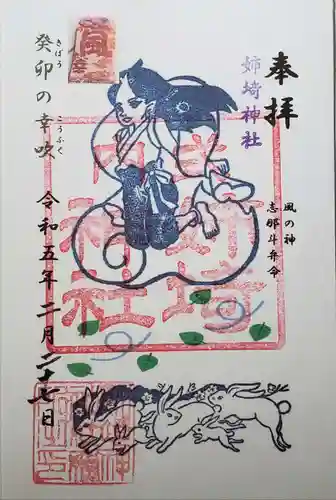 奉拝
姉埼神社
風の神
志那斗弁命
姉埼神社
令和五年二月二十七日
癸卯の幸吹
きぼう
こうふく